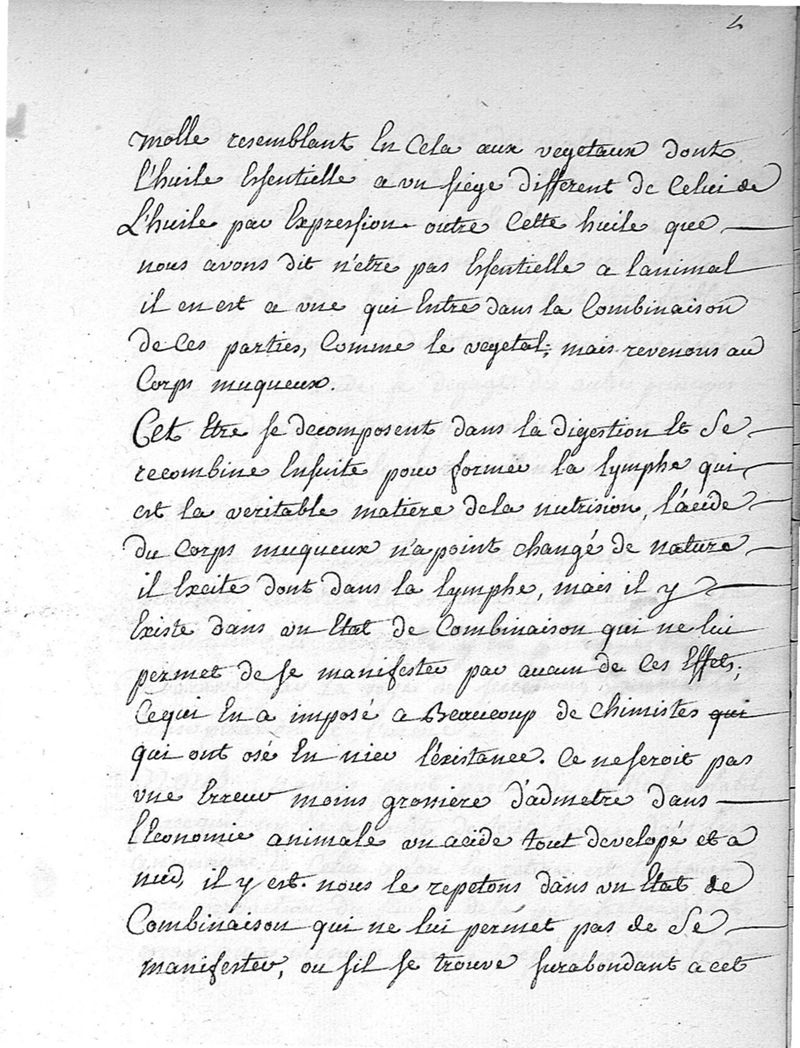 molle resemblant En Cela aux vegetaux dont
l'huile Essentielle a un siége different de Celui de
L'huile par Expression. outre Cette huile que
nous avons dit n'etre pas Essentielle a lanimal
il en est a une qui Entre dans la Combinaison
de Ces parties, Comme le vegetal; mais revenons au
Corps muqueux.
Cet Etre se decomposent dans la digestion Et Se
recombine Ensuite pour former la lymphe qui
est la veritable matiere dela nutrision, l'acide
du Corps muqueux n'a point changé de nature
il Excite dont dans la lymphe, mais il y
Existe dans un Etat de Combinaison qui ne lui
permet de se manifester par aucun de Ces Effets;
Cequi En a imposé a Beaucoup de Chimistes qui
qui ont osé En nier l'existance. Ce neseroit pas
une Erreur moins grossiere d'admetre dans
l'Economie animale un acide tout developé et a
nud, il y est. nous le repetons dans un Etat de
Combinaison qui ne lui permet pas de Se
manifester, ou sil se trouve surabondant a cet